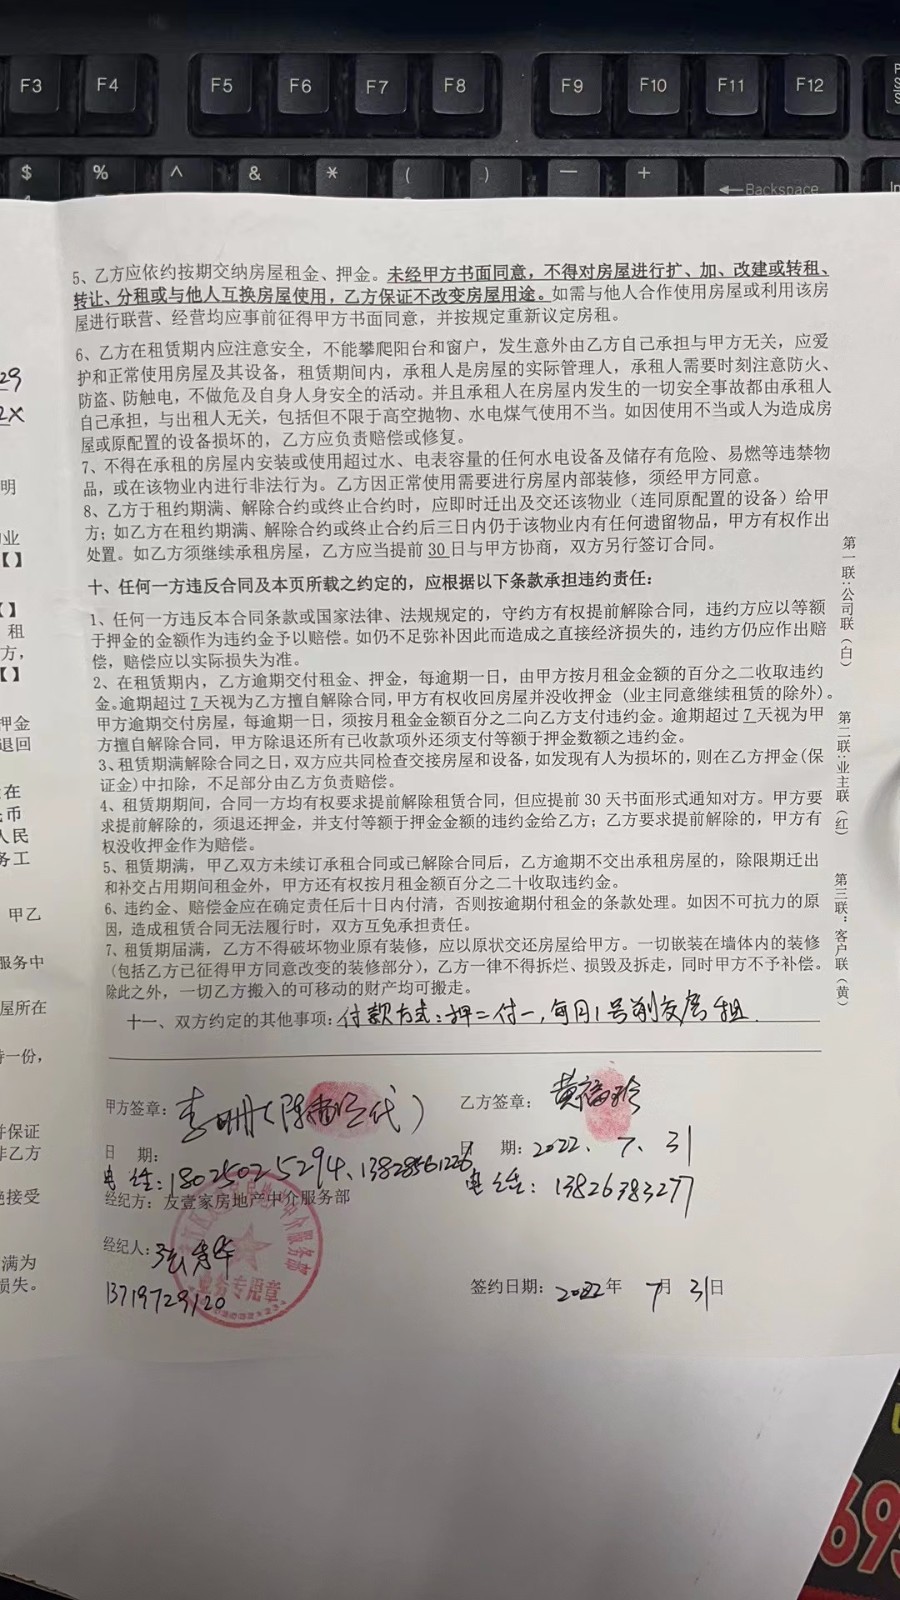 F3 F4 F5 F6 F7 F8 F9 F10 F11 F12
$ % ^ & * ( ) — + ←Backspace
5、乙方应依约按期交纳房屋租金、押金。未经甲方书面同意，不得对房屋进行扩、加、改建或转租、
转让、分租或与他人互换房屋使用，乙方保证不改变房屋用途。如需与他人合作使用房屋或利用该房
屋进行联营、经营均应事前征得甲方书面同意，并按规定重新议定房租。
6、乙方在租赁期内应注意安全，不能攀爬阳台和窗户，发生意外由乙方自己承担与甲方无关，应爱
护和正常使用房屋及其设备，租赁期间内，承租人是房屋的实际管理人，承租人需要时刻注意防火、
防盗、防触电，不做危及自身人身安全的活动。并且承租人在房屋内发生的一切安全事故都由承租人
自己承担，与出租人无关，包括但不限于高空抛物、水电煤气使用不当。如因使用不当或人为造成房
屋或原配置的设备损坏的，乙方应负责赔偿或修复。
7、不得在承租的房屋内安装或使用超过水、电表容量的任何水电设备及储存有危险、易燃等违禁物
品，或在该物业内进行非法行为。乙方因正常使用需要进行房屋内部装修，须经甲方同意。
8、乙方于租约期满、解除合约或终止合约时，应即时迁出及交还该物业（连同原配置的设备）给甲
方；如乙方在租约期满、解除合约或终止合约后三日内仍于该物业内有任何遗留物品，甲方有权作出
处置。如乙方须继续承租房屋，乙方应当提前 30 日与甲方协商，双方另行签订合同。
十、任何一方违反合同及本页所载之约定的，应根据以下条款承担违约责任：
1、任何一方违反本合同条款或国家法律、法规规定的，守约方有权提前解除合同，违约方应以等额
于押金的金额作为违约金予以赔偿。如仍不足弥补因此而造成之直接经济损失的，违约方仍应作出赔
偿，赔偿应以实际损失为准。
2、在租赁期内，乙方逾期交付租金、押金，每逾期一日，由甲方按月租金金额的百分之二收取违约
金。逾期超过 7 天视为乙方擅自解除合同，甲方有权收回房屋并没收押金（业主同意继续租赁的除外）。
甲方逾期交付房屋，每逾期一日，须按月租金金额百分之二向乙方支付违约金。逾期超过 7 天视为甲
方擅自解除合同，甲方除退还所有已收款项外还须支付等额于押金数额之违约金。
3、租赁期满解除合同之日，双方应共同检查交接房屋和设备，如发现有人为损坏的，则在乙方押金(保
证金)中扣除，不足部分由乙方负责赔偿。
4、租赁期期间，合同一方均有权要求提前解除租赁合同，但应提前 30 天书面形式通知对方。甲方要
求提前解除的，须退还押金，并支付等额于押金金额的违约金给乙方；乙方要求提前解除的，甲方有
权没收押金作为赔偿。
5、租赁期满，甲乙双方未续订承租合同或已解除合同后，乙方逾期不交出承租房屋的，除限期迁出
和补交占用期间租金外，甲方还有权按月租金额百分之二十收取违约金。
6、违约金、赔偿金应在确定责任后十日内付清，否则按逾期付租金的条款处理。如因不可抗力的原
因，造成租赁合同无法履行时，双方互免承担责任。
7、租赁期届满，乙方不得破坏物业原有装修，应以原状交还房屋给甲方。一切嵌装在墙体内的装修
(包括乙方已征得甲方同意改变的装修部分)，乙方一律不得拆烂、损毁及拆走，同时甲方不予补偿。
除此之外，一切乙方搬入的可移动的财产均可搬走。
十一、双方约定的其他事项：付款方式：押二付一，每月1号前交房租.
甲方签章： 乙方签章：黄福玲
日 期： 日 期：2022、7、31
电话：18025025294、13828561226 电话：13826383277
经纪方：友壹家房地产中介服务部
经纪人：
13719729120
签约日期：2022年 7月 31日
业务专用章
第一联：公司联（白）
第二联：业主联（红）
第三联：客户联（黄）
29
2X
明
业
【】
【】
租
方，
【】
押金
退回
在
币
人民
务工
甲乙
服务中
屋所在
一份，
保证
乙方
绝接受
满为
损失。